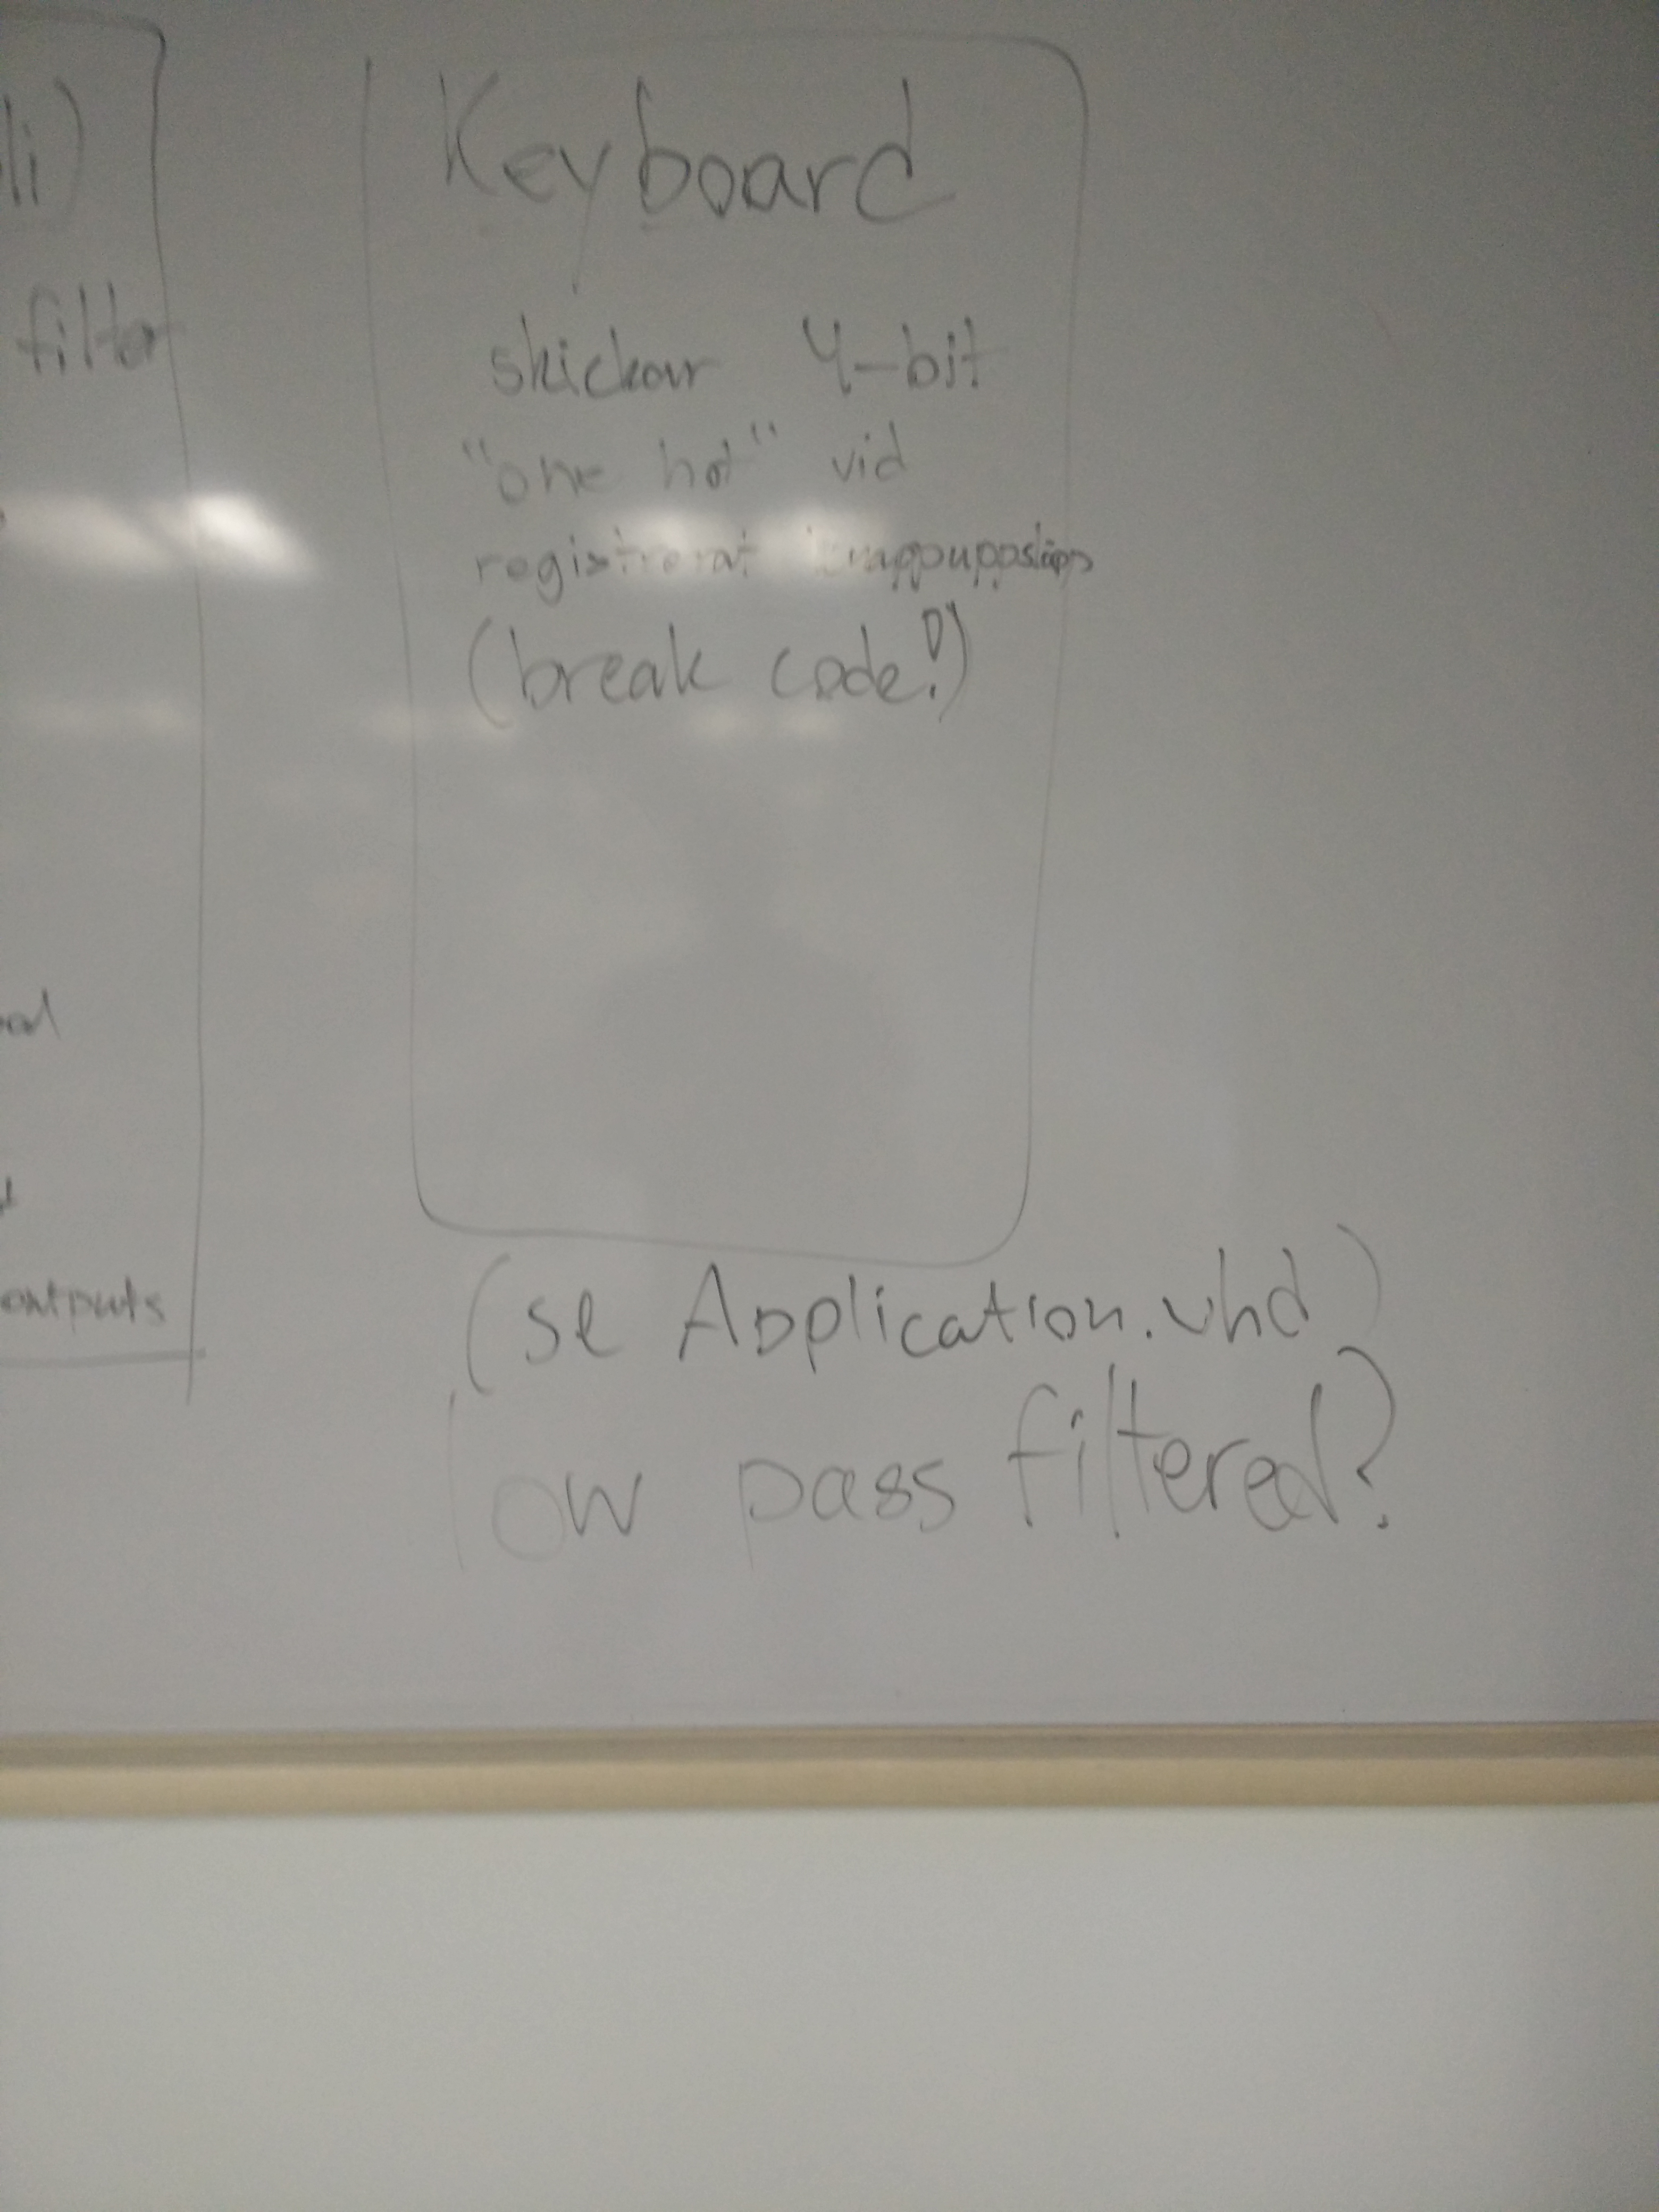 li)
filter
outputs
Keyboard
skickar 4-bit
"one hot" vid
registrerat knappuppsläpp
(break code!)
(se Application.vhd)
low pass filtered?